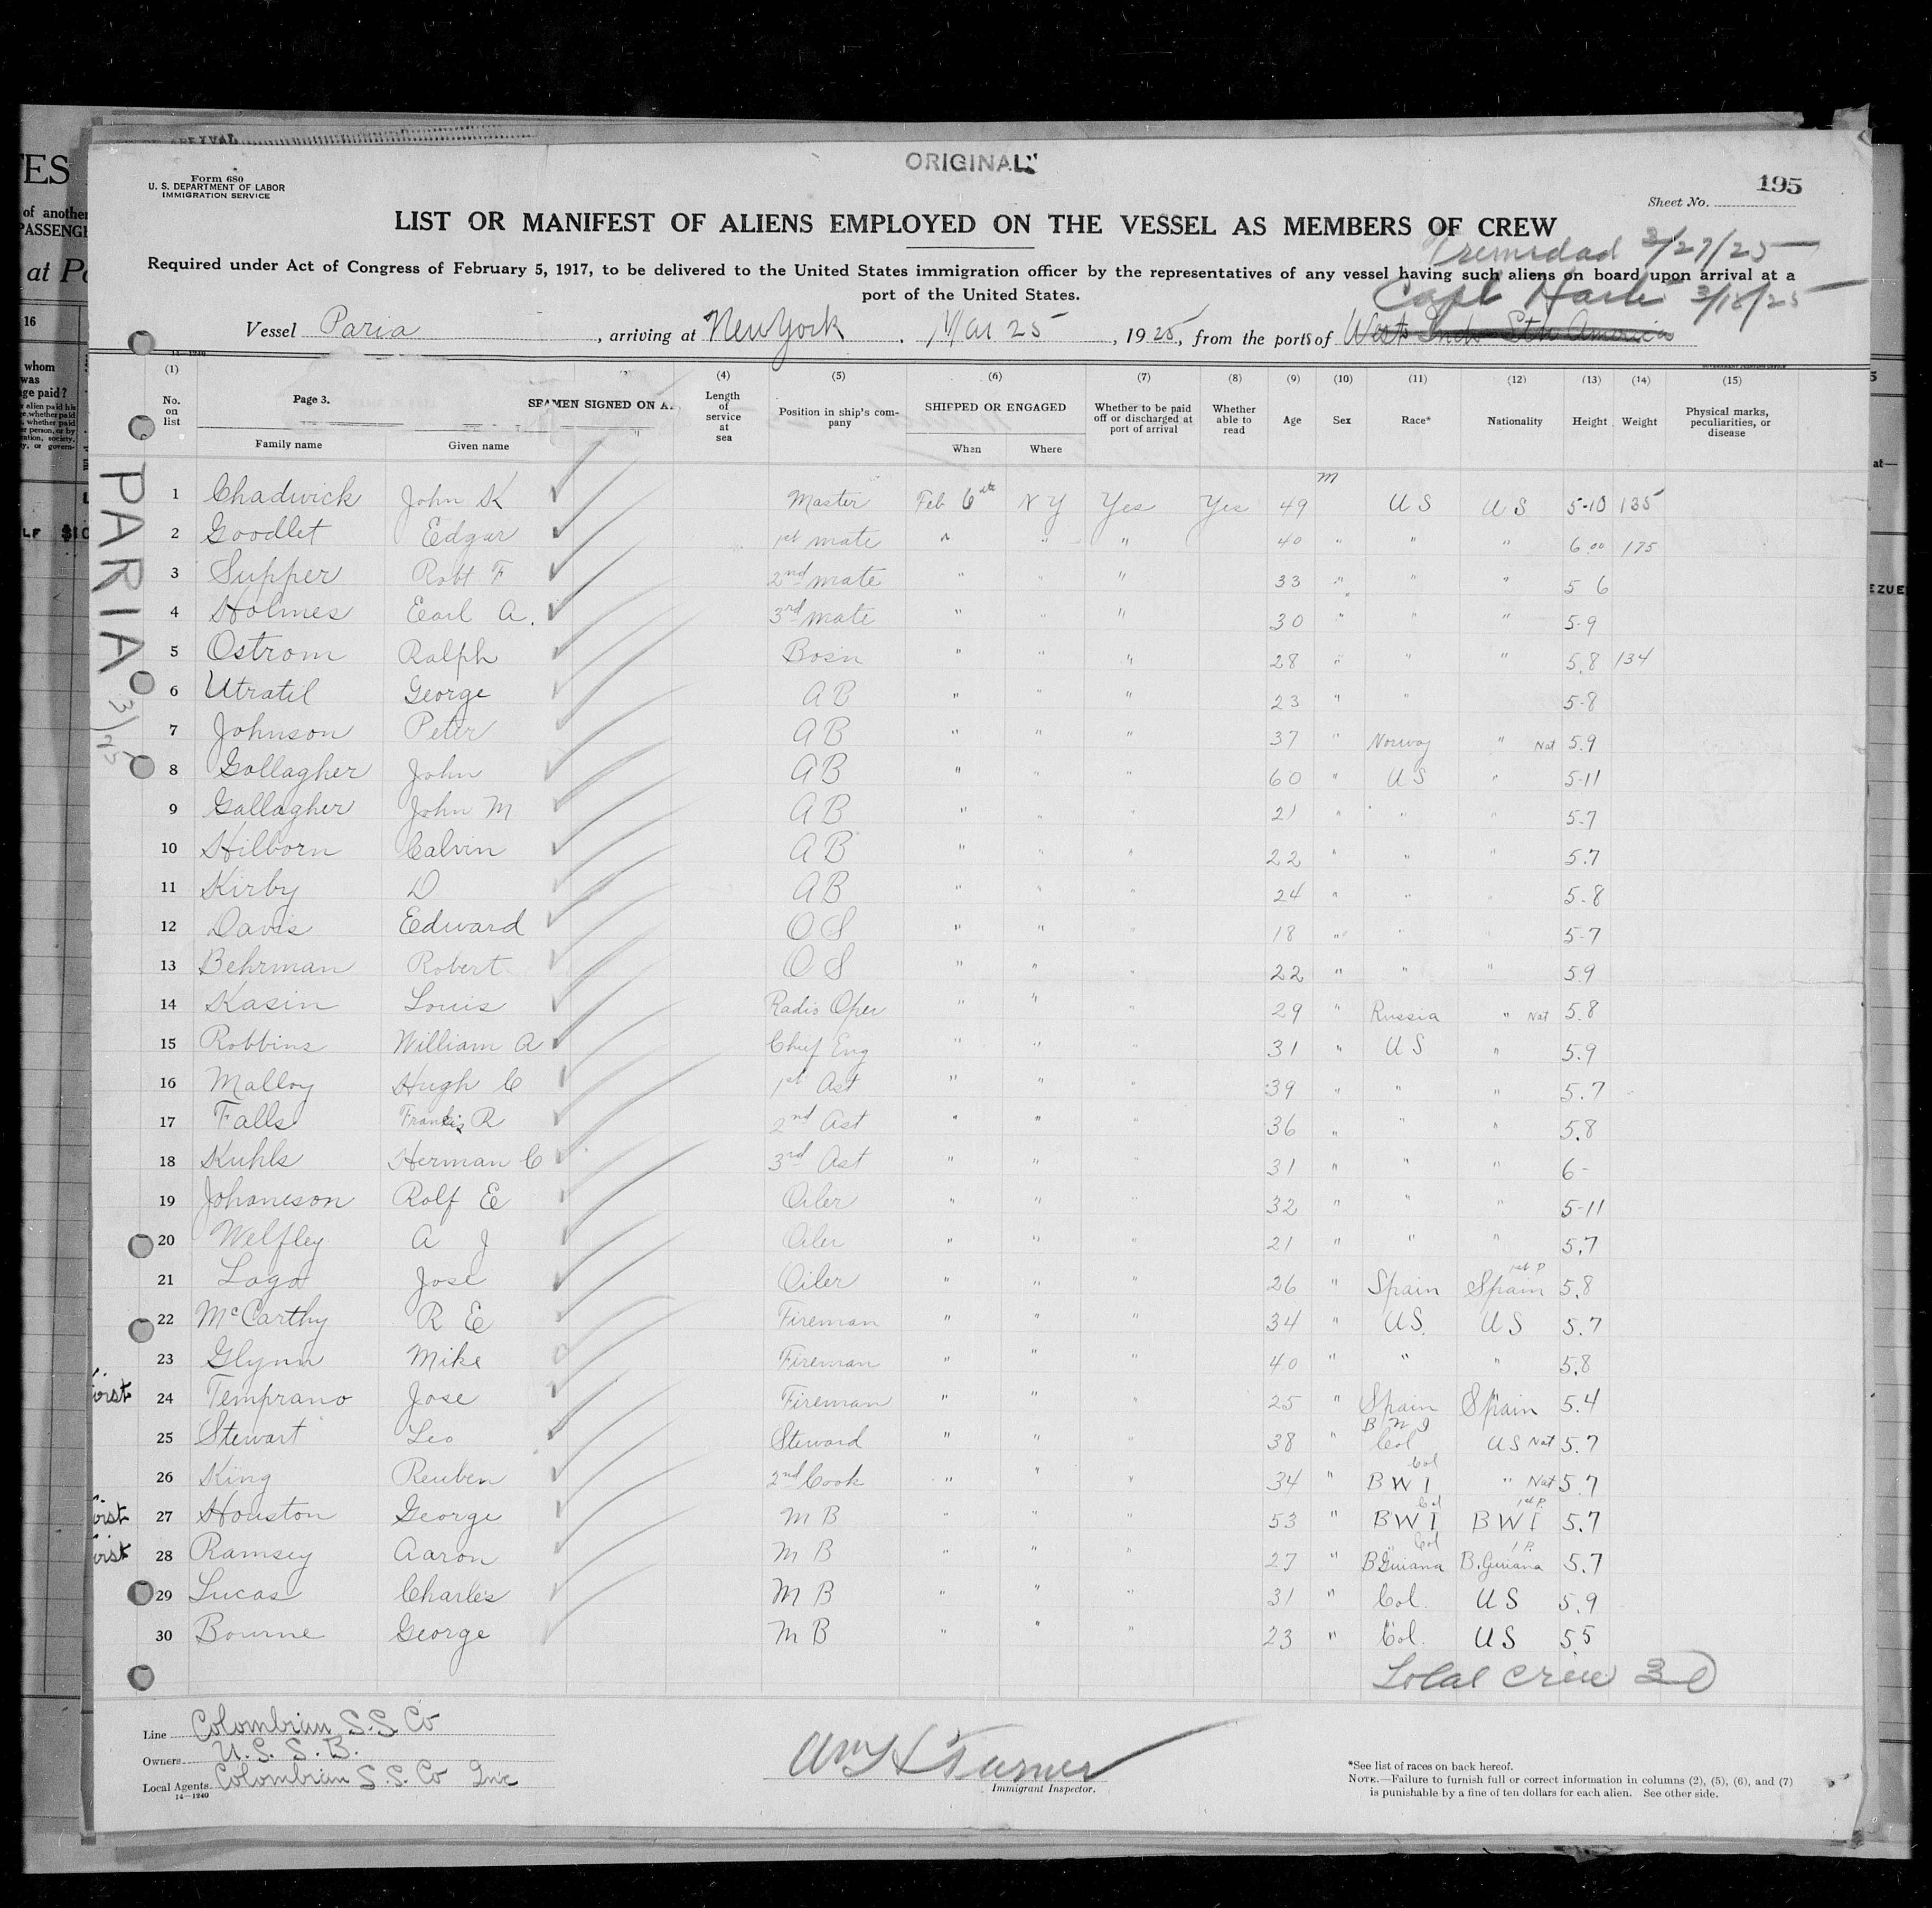 ORIGINAL
Form 680
U. S. DEPARTMENT OF LABOR
IMMIGRATION SERVICE
195
Sheet No.
LIST OR MANIFEST OF ALIENS EMPLOYED ON THE VESSEL AS MEMBERS OF CREW
Trinidad 2/27/25
Required under Act of Congress of February 5, 1917, to be delivered to the United States immigration officer by the representatives of any vessel having such aliens on board upon arrival at a
port of the United States.
3/18/25
Vessel Paria, arriving at New York, Mar 25, 1925, from the ports of West Inds Sth America
(1) (4) (5) (6) (7) (8) (9) (10) (11) (12) (13) (14) (15)
No. on list Page 3. SEAMEN SIGNED ON A. Length of service at sea Position in ship's company SHIPPED OR ENGAGED Whether to be paid off or discharged at port of arrival Whether able to read Age Sex Race* Nationality Height Weight Physical marks, peculiarities, or disease
Family name Given name When Where
1 Chadwick John K Master Feb 6th N Y Yes Yes 49 m U S U S 5-10 135
2 Goodlet Edgar 1st mate " " " 40 " " " 6 00 175
3 Supper Robt F 2nd mate " " " 33 " " " 5 6
4 Holmes Earl A. 3rd mate " " " 30 " " " 5-9
5 Ostrom Ralph Bosn " " " 28 " " " 5.8 134
6 Utratil George A B " " " 23 " " 5-8
7 Johnson Peter A B " " " 37 " Norway " Nat 5.9
8 Gallagher John A B " " " 60 " U S " 5-11
9 Gallagher John M A B " " " 21 " " " 5-7
10 Hilborn Calvin A B " " " 22 " " " 5.7
11 Kirby D A B " " " 24 " " " 5-8
12 Davis Edward O S " " " 18 " " " 5-7
13 Behrman Robert O S " " " 22 " " " 5.9
14 Kasin Louis Radio Oper " " " 29 " Russia " Nat 5.8
15 Robbins William A Chief Eng " " " 31 " U S " 5.9
16 Malloy Hugh C 1st Ast " " " 39 " " " 5.7
17 Falls Francis R 2nd Ast " " " 36 " " " 5.8
18 Kuhls Herman C 3rd Ast " " " 31 " " " 6-
19 Johaneson Rolf E Oiler " " " 32 " " " 5-11
20 Welfley A J Oiler " " " 21 " " " 5.7
21 Lago Jose Oiler " " " 26 " Spain Spain 1st P 5.8
22 McCarthy R E Fireman " " " 34 " U S. U S 5.7
23 Glynn Mike Fireman " " " 40 " " " 5.8
24 Temprano Jose Fireman " " " 25 " Spain Spain 5.4
25 Stewart Leo Steward " " " 38 " B W I Col U S Nat 5.7
26 King Reuben 2nd Cook " " " 34 " B W I Col " Nat 5.7
27 Houston George M B " " " 53 " B W I Col B W I 1st P. 5.7
28 Ramsey Aaron M B " " " 27 " B Guiana Col B. Guiana 1 P. 5.7
29 Lucas Charles M B " " " 31 " Col. U S 5.9
30 Bourne George M B " " " 23 " Col. U S 5 5
Total crew 30
PARIA
Line Colombian S.S. Co
Owners U. S. S. B.
Local Agents Colombian S.S. Co Inc
14—1240
Wm H Turner
Immigrant Inspector.
*See list of races on back hereof.
NOTE.—Failure to furnish full or correct information in columns (2), (5), (6), and (7)
is punishable by a fine of ten dollars for each alien. See other side.